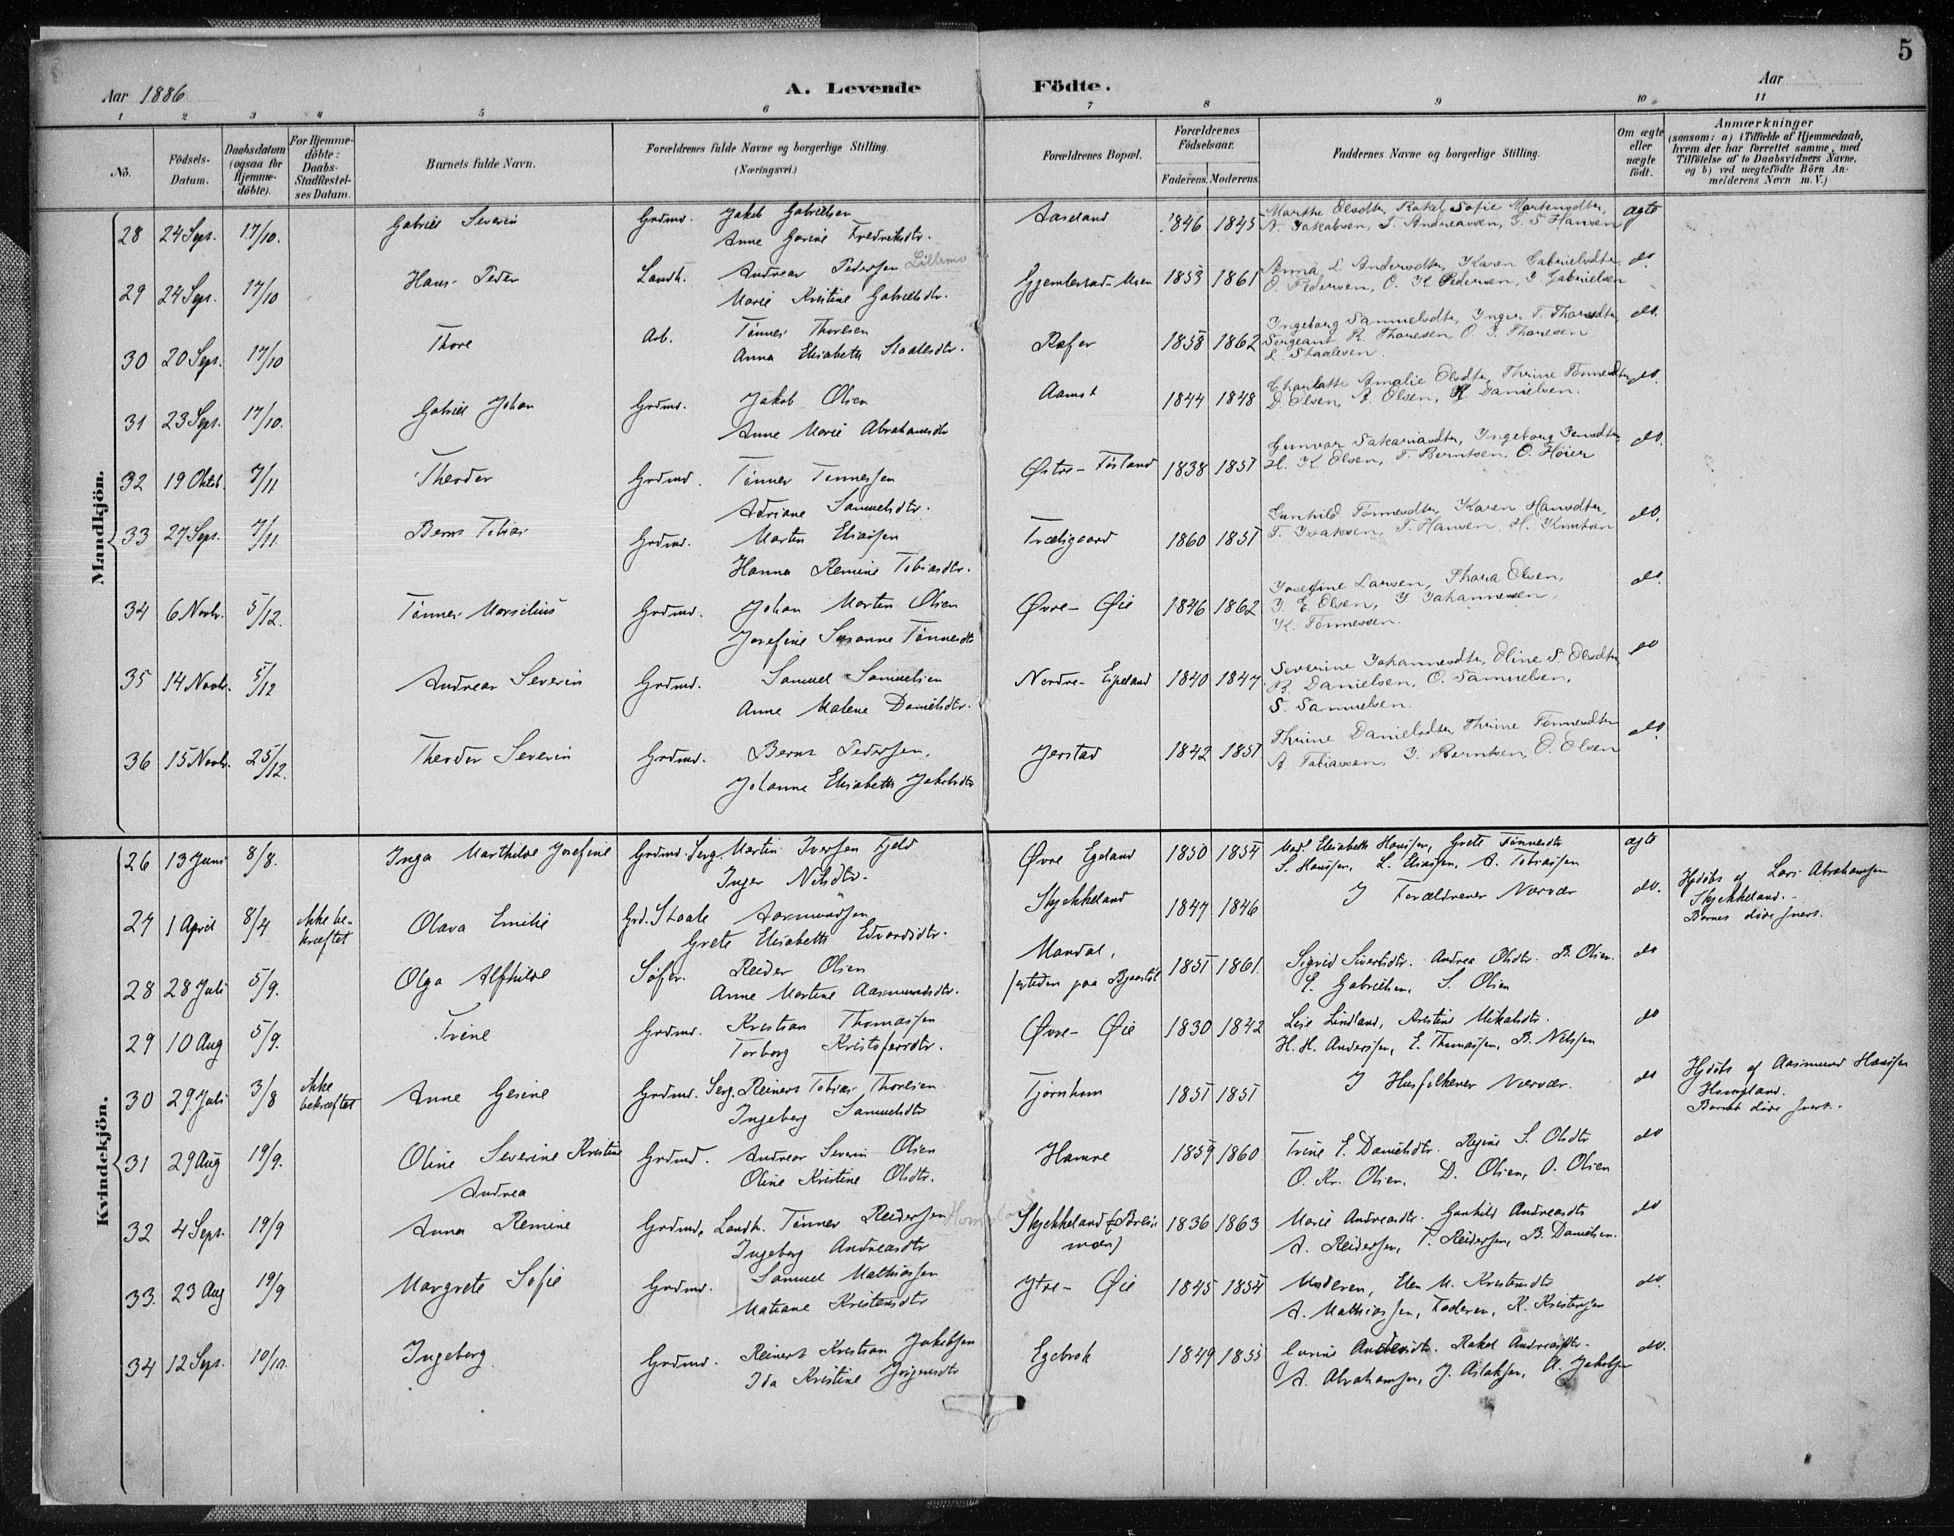 5
Aar 1886
A. Levende
Födte.
Aar
1 2 3 4 5 6 7 8 9 10 11
No.
Födsels-Datum.
Daabsdatum (ogsaa for Hjemme-döbte).
For Hjemme-döbte: Daabs-Stadfæstel-ses Datum.
Barnets fulde Navn.
Forældrenes fulde Navne og borgerlige Stilling. (Næringsvei.)
Forældrenes Bopæl.
Forældrenes Födselsaar.
Faderens. Moderens.
Faddernes Navne og borgerlige Stilling.
Om ægte eller uægte födt.
Anmærkninger
(saasom: a) i Tilfælde af Hjemmedaab, hvem der har forrettet samme, med Tilföielse af to Daabsvidners Navne, og b) ved uægtefödte Börn An-melderens Navn m. V.)
Mandkjön.
28 24 Sept. 17/10. Gabriel Severin Grdmd. Jakob Gabrielsen Aaseland 1846 1845 Marthe Olsdtr, Rakel Sofie Martensdtr, ægte
Anne Gurine Fredriksdtr. N. Jakobsen, T. Andreassen, G. S. Hansen
29 24 Sept. 17/10 Hans Peder Landh. Andreas Pedersen Lillemo Gjemlestad-Moen 1853 1861 Anna L. Andersdtr, Karen Gabrielsdtr, do.
Marie Kristine Gabrielsdtr. O. Pedersen, O. K. Pedersen, J. Gabrielsen
30 20 Sept. 17/10 Thore Arb. Tønnes Thoresen Røfer 1858 1862 Ingeborg Samuelsdtr, Inger T. Thoresdtr, do.
Anna Elisabeth Staalesdtr. Sergeant R. Thoresen, O. J. Thoresen
L. Staalesen.
31 23 Sept. 17/10. Gabriel Johan Grdmd. Jakob Olsen Aamot 1844 1848 Charlotte Amalie Olsdtr, Thrine Tønnesdtr do.
Anne Marie Abrahamsdtr D. Olsen, A. Olsen, Danielsen.
32 19 Oktob. 7/11 Theodor Grdmd. Tønnes Tønnesen Østre-Føsland 1838 1851 Gunvor Sakariasdtr, Ingeborg Jensdtr, do.
Adriane Samuelsdtr. H. K. Olsen, T. Berntsen, O. Høier
33 27 Sept. 7/11. Bernt Tobias Grdmd. Morten Eliassen Trædsgaard 1860 1851 Gunhild Tønnesdtr, Karen Hansdtr, do.
Hanna Remine Tobiasdtr. T. Isaksen, T. Hansen, H. Knutsen
34 6 Novbr. 5/12. Tønnes Marselius Grdmd. Johan Morten Olsen Øvre-Øie 1846 1862 Josefine Larsen, Thora Olsen, do.
Josefine Susanne Tønnesdtr J. E. Olsen, J. Johannesen,
K. Tønnessen.
35 14 Novbr. 5/12 Andreas Severin Grdmd. Samuel Samuelsen Nordre-Egeland 1840 1847 Severine Johannesdtr, Oline S. Olsdtr, do
Anne Malene Danielsdtr. R. Danielsen, O. Samuelsen,
S. Samuelsen.
36 15 Novbr. 25/12. Theodor Severin Grdmd. Bernt Pedersen, Jerstad 1842 1851 Thrine Danielsdtr, Thrine Tønnesdtr do.
Johanne Elisabeth Jakobsdtr A. Tobiassen, J. Berntsen, O. Olsen
Kvindekjön.
26 13 Juni 8/8. Inga Marthilde Josefine Grdmd. Serg. Martin Iversen Fjeld Øvre Egeland 1850 1854 Mad. Elisabeth Hansen, Grete Tønnesdtr ægte
Inger Nilsdtr. S. Hansen, L. Eliassen, A. Tobiassen
27 1 April 8/4 Ikke be-kræftet Olava Emilie Grd. Staale Aasmundsen Skjekkeland 1847 1846 I Forældrenes Nærvær do. Hjdøbt af Lars Abrahamsen Skjekkeland. Barnet døde forst.
Grete Elisabeth Edvardsdtr.
28 28 Juli 5/9. Olga Alfhilde Søfar. Reider Olsen Mandal, for tiden paa Bjørstøl 1851 1861 Sigrid Sivertsdtr. Andrea Olsdtr. B. Olsen. do
Anne Martine Aasmundsdtr. E. Gabrielsen, S. Olsen
29 10 Aug 5/9. Trine Grdmd. Kristian Thomassen Øvre-Øie 1830 1842 Leie Lindland, Kristine Mikalsdtr. do
Torborg Kristoffersdtr. H. H. Anderssen, E. Thomassen, B. Nilssen
30 29 Juli 3/8 Ikke bekræftet Anne Gesine Grdmd. Serg. Reinert Tobias Thoresen Tjørnhom 1851 1851 I Husfolkenes Nærvær. do Hjdøbt af Aasmund Hansen Hompland. Barnet døde forst.
Ingeborg Samuelsdtr
31 29 Aug 19/9. Oline Severine Kristine Andrea Grdmd. Andreas Severin Olsen Hamre 1859 1860 Trine E. Danielsdtr. Regine S. Olsdtr do
Oline Kristine Olsdtr. O. Kr. Olsen. D. Olsen, O. Olsen
32 4 Sept. 19/9 Anna Remine Grdmd, Landh. Tønnes Reidersen Skjekkeland 1836 1863 Marie Andreasdtr. Gunhild Andreasdtr do
Ingeborg Andreasdtr moen) A. Reidersen, T. Reidersen, B. Danielsen.
33. 23 Aug 19/9 Margrete Sofie Grdmd. Samuel Mathiassen Ytre-Øie 1845 1854 Moderen, Elen M. Kristensdtr do.
Matiane Kristensdtr A. Mathiassen, Faderen, K. Kristensen
34 12 Sept. 10/10. Ingeborg. Grdmd. Reinert Kristian Jakobsen Egebrok 1849 1855 Andersdtr. Rakel Andreasdtr. do.
Ida Kristine Jørgensdtr A. Abrahamsen, J. Aslaksen, A. Jakobsen